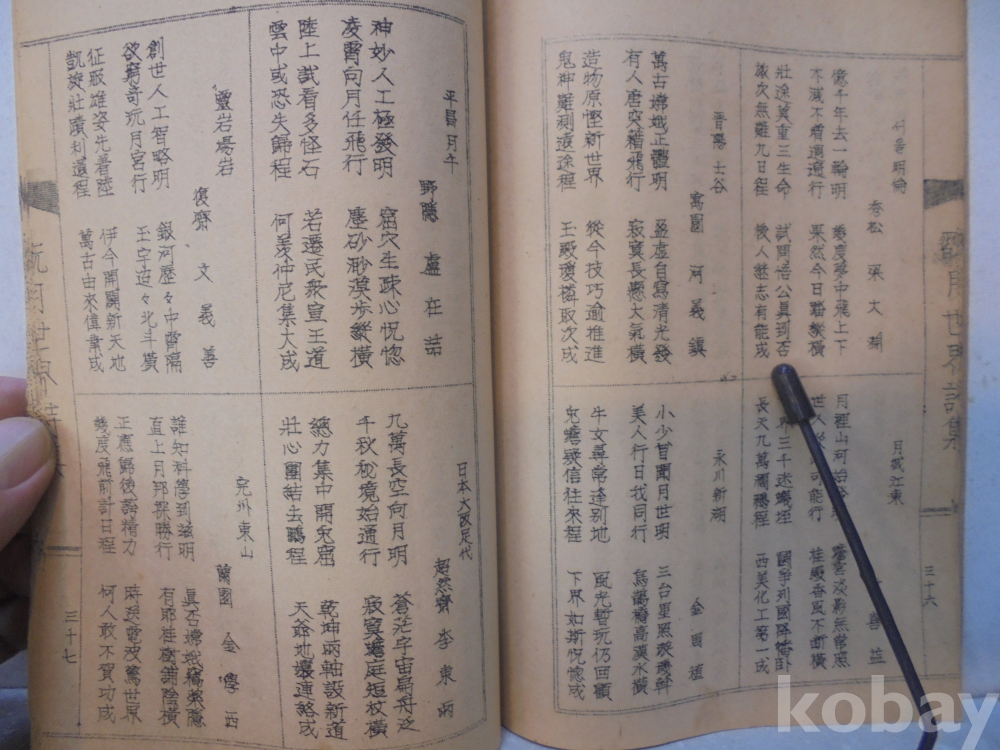 서울明倫
春松 張大
億千年去一輪明 幾度夢中飛上下
不減不增週遍行 果然今日踏縱橫
壯途莫重三生命 試問悟公眞到否
依次無難九日程 後人繼志有能成
晋陽 士谷
寓園 河義鎭
萬古嫦娥正體明 盈虛自寫清光發
有人唐突藉飛行 寂寞長懸大氣橫
造物原慳新世界 從今技巧逾推進
鬼神難測遠途程 玉殿瓊樓取次成
月城江東
善並
月裡山河始
世人 可能行 桂殿香風不斷橫
界三千迷蟻垤 列國降幡
長天九萬闊鵬程 西美化工第一成
永川新湖
金圓植
小少曾聞月世明 三台星照
美人行日我同行 烏鵲橋高漢水橫
牛女尋常逢別地 風光暫玩仍回顧
兎蟾疑信往來程 下界如斯怳惚成
月世界詩集
三十六
平昌月午
野隱 盧在喆
神妙人工極發明 窟穴生疎心怳惚
凌霄向月任飛行 塵砂渺漠步縱橫
陸上試看多怪石 若遷民衆宣王道
雲中或恐失歸程 何羨仲尼集大成
靈岩場岩
復齋 文義善
創世人工智略明 銀河歷々中霄隔
欲窮奇玩月宮行 玉宇迢々北斗橫
征服雄姿先着陸 伊今開闢新天地
凱旋壯蹟利還程 萬古由來偉業成
日本大阪足代
超然齋 李東炳
九萬長空向月明 蒼茫宇宙扁舟泛
千秋秘境始通行 寂寞蟾庭短杖橫
總力集中開兎窟 乾坤兩軸設新道
壯心團結去鵬程 天爺地孃連絡成
完州東山
蘭園 金學西
誰知科學到玆明 眞否嫦娥 藥隱
直上月邦探勝行 有耶桂樹鋪陰橫
正應歸後論精力 時送電波驚世界
幾度飛前計日程 何人敢不賀功成
玩月世界詩集
三十七
kobay